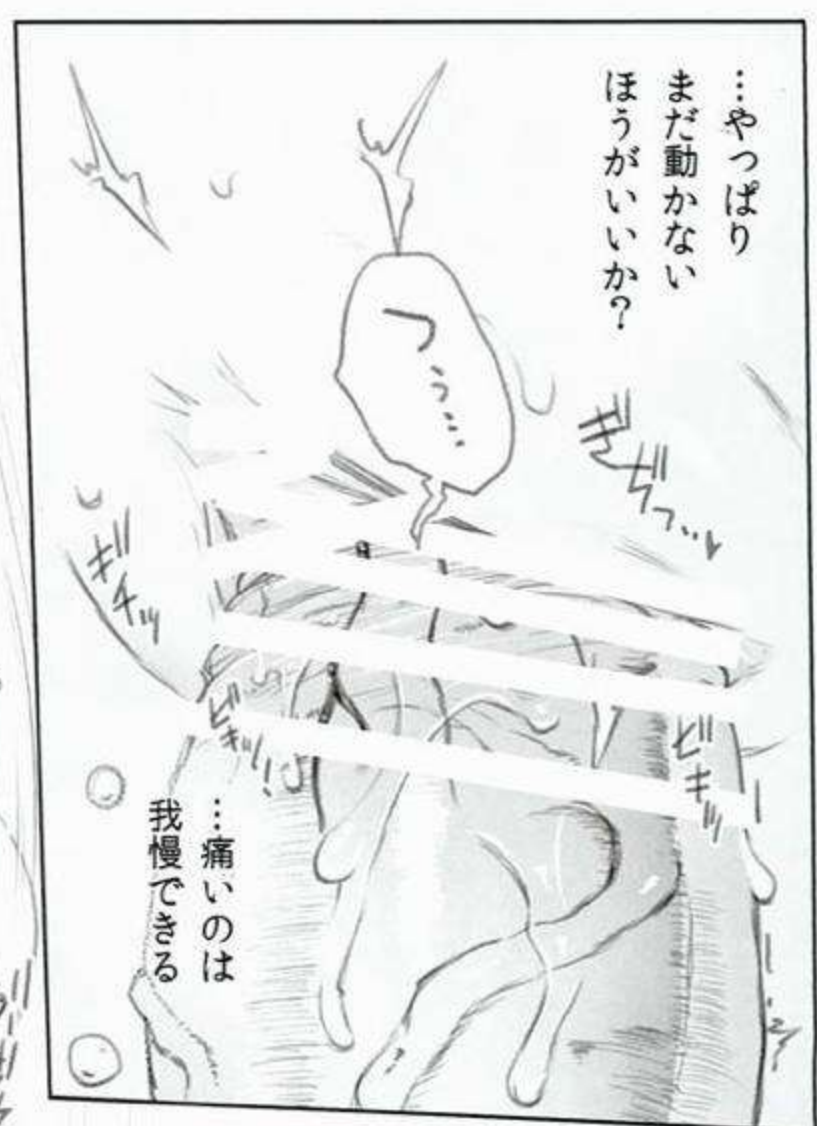 …やっぱり
まだ動かない
ほうがいいか?
っ
う…
ギヂッ…♥
ギチッ
ビキッ!
ビキッ
…痛いのは
我慢できる